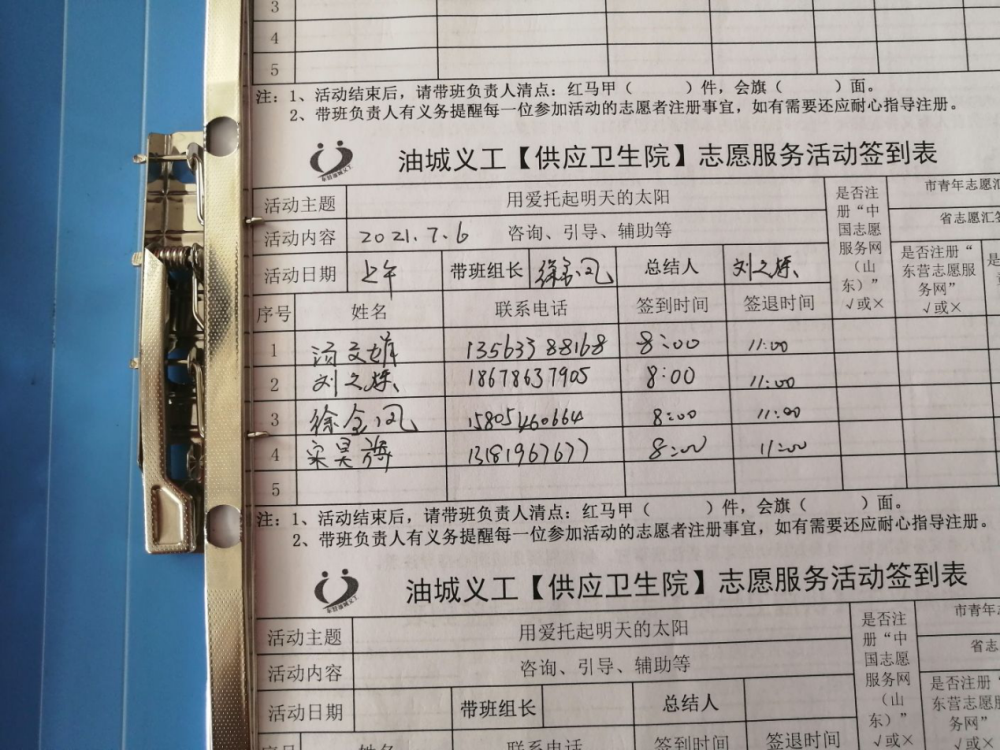 3
4
5
注：1、活动结束后，请带班负责人清点：红马甲（ ）件，会旗（ ）面。
2、带班负责人有义务提醒每一位参加活动的志愿者注册事宜，如有需要还应耐心指导注册。
油城义工【供应卫生院】志愿服务活动签到表
活动主题 用爱托起明天的太阳 是否注册“中国志愿服务网（山东）”√或× 市青年志愿汇
活动内容 2021.7.6 咨询、引导、辅助等 省志愿汇签
活动日期 上午 带班组长 徐金凤 总结人 刘之栋 是否注册“东营志愿服务网”√或× 是
序号 姓名 联系电话 签到时间 签退时间
1 13563388168 8:00 11:00
2 刘之栋 18678637905 8:00 11:00
3 徐金凤 15805460664 8:00 11:00
4 宋昊 13181967677 8:00 11:00
5
注：1、活动结束后，请带班负责人清点：红马甲（ ）件，会旗（ ）面。
2、带班负责人有义务提醒每一位参加活动的志愿者注册事宜，如有需要还应耐心指导注册。
油城义工【供应卫生院】志愿服务活动签到表
活动主题 用爱托起明天的太阳 是否注册“中国志愿服务网（山东）”√或× 市青年志
活动内容 咨询、引导、辅助等 省志
活动日期 带班组长 总结人 是否注册“东营志愿服务网”√或×
序号 姓名 联系电话 签到时间 签退时间